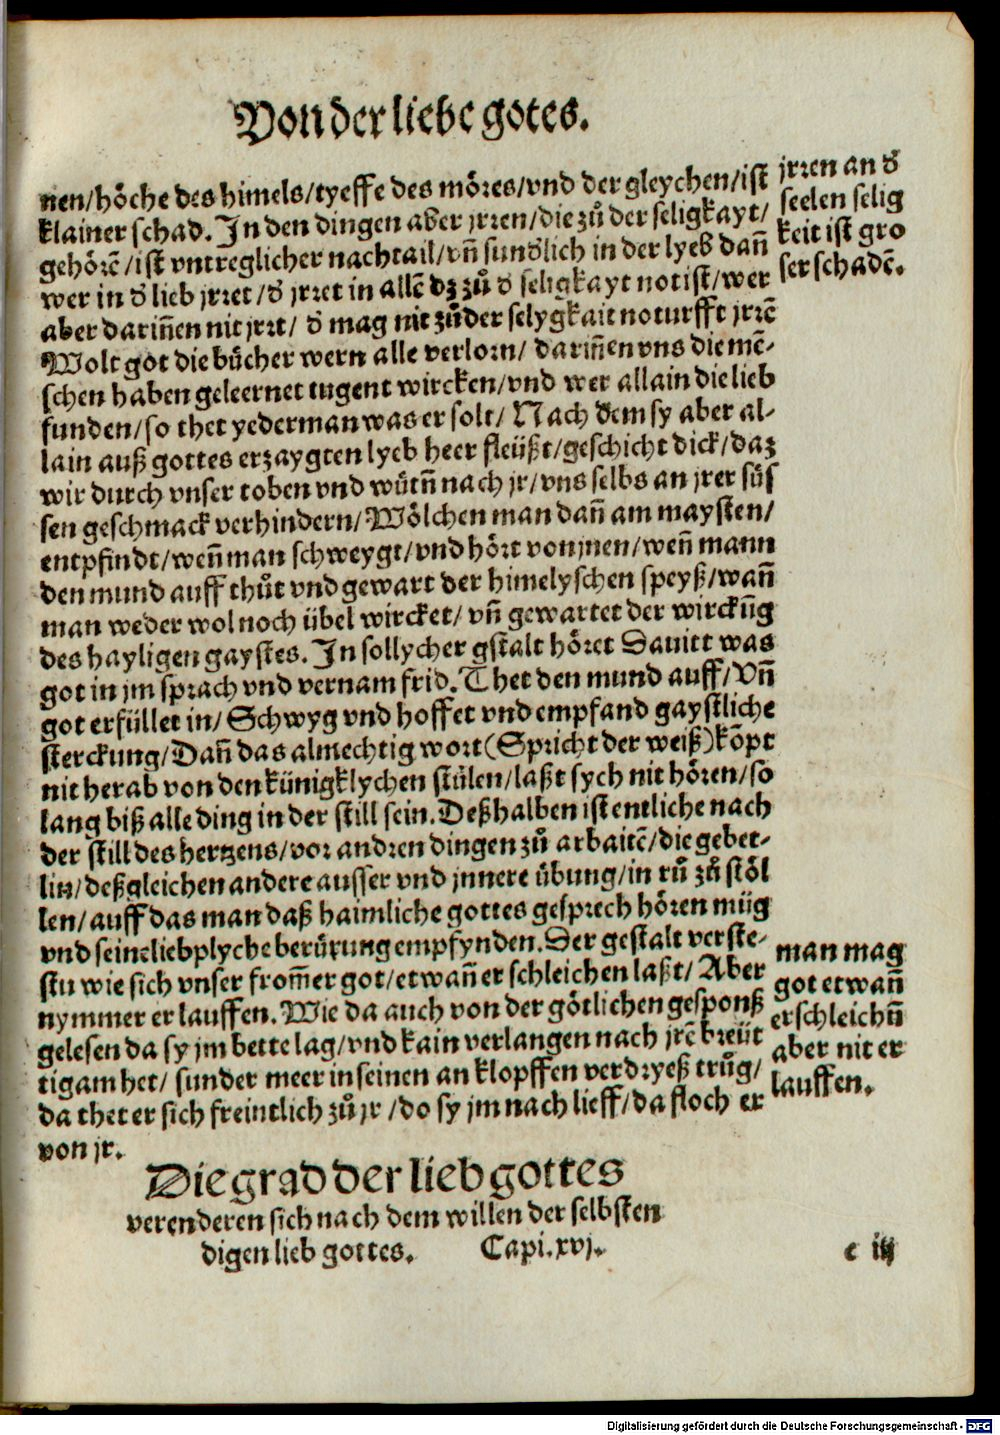 Von der liebe gotes.
nen/höche des himels/tyeffe des möres/vnd der gleychen/ist
klainer schad. In den dingen aber jrren/die zů der seligkayt/
gehörē/ist vntreglicher nachtail/vñ sunđlich in der lyeb dañ
wer in đ lieb jrret/đ jrret in allē dz zů đ seligkayt not ist/wer
aber dariñen nit jrrt/ đ mag nit zů der selygkait noturfft jrrē
Wolt got die bücher wern alle verlorn/ dariñen vns die mē-
schen haben geleernet tugent wircken/vnd wer allain die lieb
funden/so thet yederman was er solt/ Nach dem sy aber al-
lain auß gottes erzaygten lyeb heer fleüßt/geschicht dick/daz
wir durch vnser toben vnd wütñ nach jr/vns selbs an jrer süs
sen geschmack verhindern/Wölchen man dañ am maysten/
entpfindt/weñ man schweygt/vnd hört von jnen/weñ mann
den mund auff thůt vnd gewart der himelyschen speyß/wañ
man weder wol noch übel wircket/ vñ gewartet der wirckūg
des hayligen gaystes. In sollycher gstalt höret Dauitt was
got in jm sprach vnd vernam frid. Thet den mund auff/Vñ
got erfüllet in/Schwyg vnd hoffet vnd empfand gaystliche
sterckung/Dañ das almechtig wort(Spricht der weiß)kōpt
nit herab von den künigklychen stülen/laßt sych nit hören/so
lang biß alle ding in der still sein. Deßhalben ist entliche nach
der still des hertzens/vor andren dingen zů arbaitē/die gebet-
lin/deßgleichen andere ausser vnd jnnere übung/in rů zů stöl
len/auff das man daß haimliche gottes gesprech hören müg
vnd seine liebplyche berürung empfynden. Der gestalt verste-
stu wie sich vnser from̄er got/etwañ er schleichen laßt/ Aber
nymmer er lauffen. Wie da auch von der götlichen gesponß
gelesen da sy jm bette lag/vnd kain verlangen nach jrē breüt
tigam het/ sunder meer in seinen an klopffen verdryeß trůg/
da thet er sich freintlich zů jr /do sy jm nach lieff/da floch er
von jr.
jrren an đ
seelen selig
keit ist gro
ser schadē.
man mag
got etwañ
erschleichñ
aber nit er
lauffen.
Die grad der lieb gottes
verenderen sich nach dem willen der selbsten
digen lieb gottes. Capi.xvj.
c iij
Digitalisierung gefördert durch die Deutsche Forschungsgemeinschaft - DFG